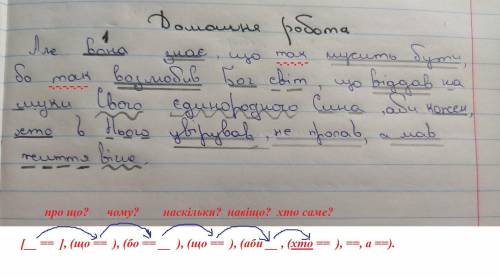 Домашня робота
Але вона знає, що так мусить бути,
бо так возлюбив Бог світ, що віддав на
муки Свого єдинородного Сина, аби кожен,
хто в Нього увірував, не пропав, а мав
життя вічне.
про що? чому? наскільки? навіщо? хто саме?
[__ == ], (що == ), (бо == __ ), (що == ), (аби __ , (хто == ), ==, а ==).